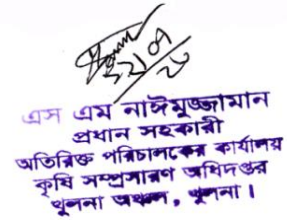 এস এম নাঈমুজ্জামান
প্রধান সহকারী
অতিরিক্ত পরিচালকের কার্যালয়
কৃষি সম্প্রসারণ অধিদপ্তর
খুলনা অঞ্চল, খুলনা।